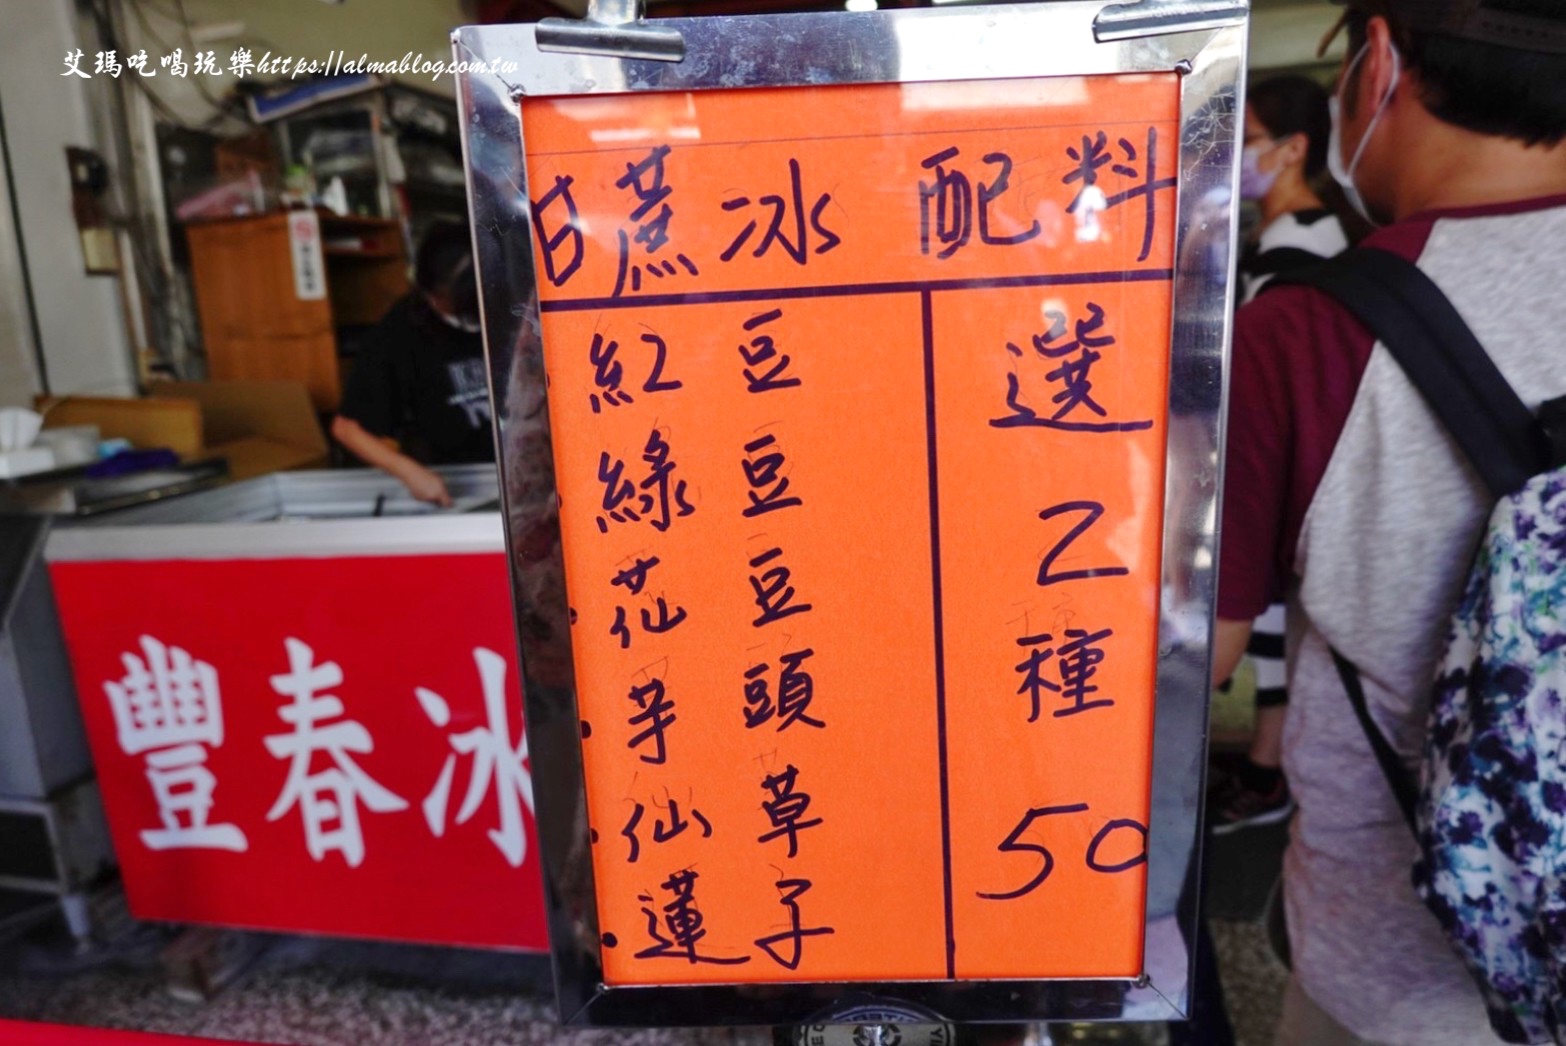 艾瑪吃喝玩樂https://almablog.com.tw
甘蔗冰 配料
紅豆
綠豆
花豆
芋頭
仙草
蓮子
選
2
種
50
豐春冰